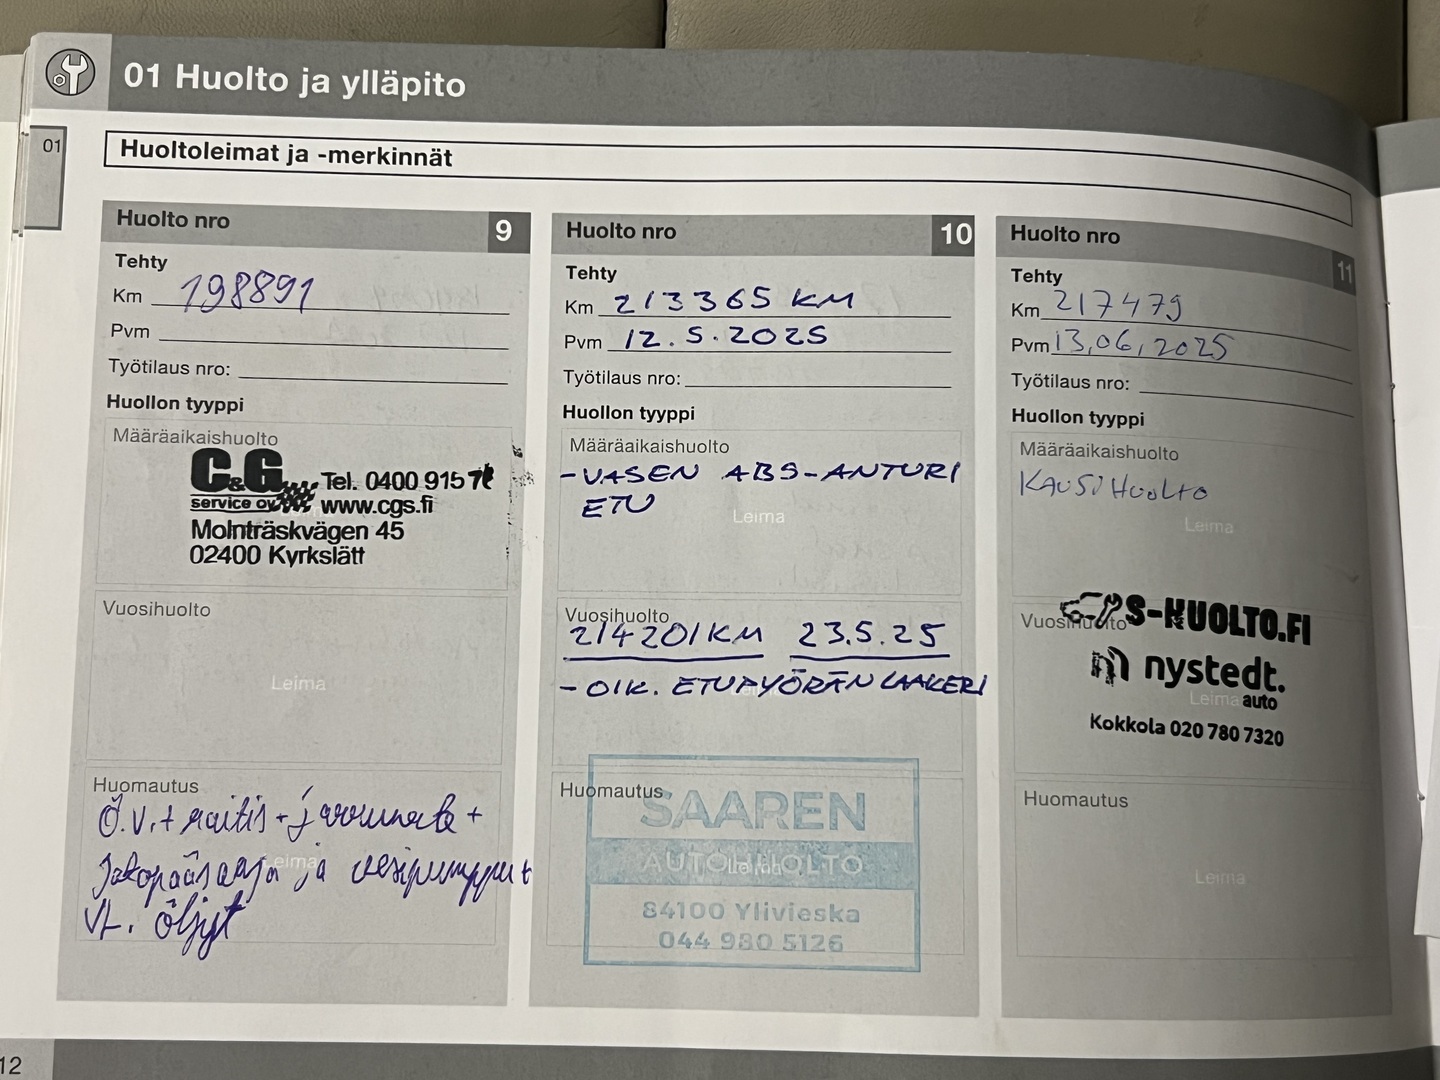 01 Huolto ja ylläpito
01
Huoltoleimat ja -merkinnät
Huolto nro 9
Tehty
Km 198891
Pvm
Työtilaus nro:
Huollon tyyppi
Määräaikaishuolto
C&G service oy
Tel. 0400 915
www.cgs.fi
Molnträskvägen 45
02400 Kyrkslätt
Vuosihuolto
Leima
Huomautus
Ö.v. + raitis + jarruneste +
Jakopääsarja ja vesipumppu +
Leima
vl. öljyt
Huolto nro 10
Tehty
Km 213365 KM
Pvm 12.5.2025
Työtilaus nro:
Huollon tyyppi
Määräaikaishuolto
- VASEN ABS-ANTURI
ETU
Leima
Vuosihuolto
214201KM 23.5.25
- OIK. ETUPYÖRÄN LAAKERI
Huomautus
SAAREN
AUTOHUOLTO
Leima
84100 Ylivieska
044 980 5126
Huolto nro 11
Tehty
Km 217479
Pvm 13,06,2025
Työtilaus nro:
Huollon tyyppi
Määräaikaishuolto
KAUSIHuoLto
Leima
Vuosihuolto
S-HUOLTO.FI
nystedt.
Leima
auto
Kokkola 020 780 7320
Huomautus
Leima
12